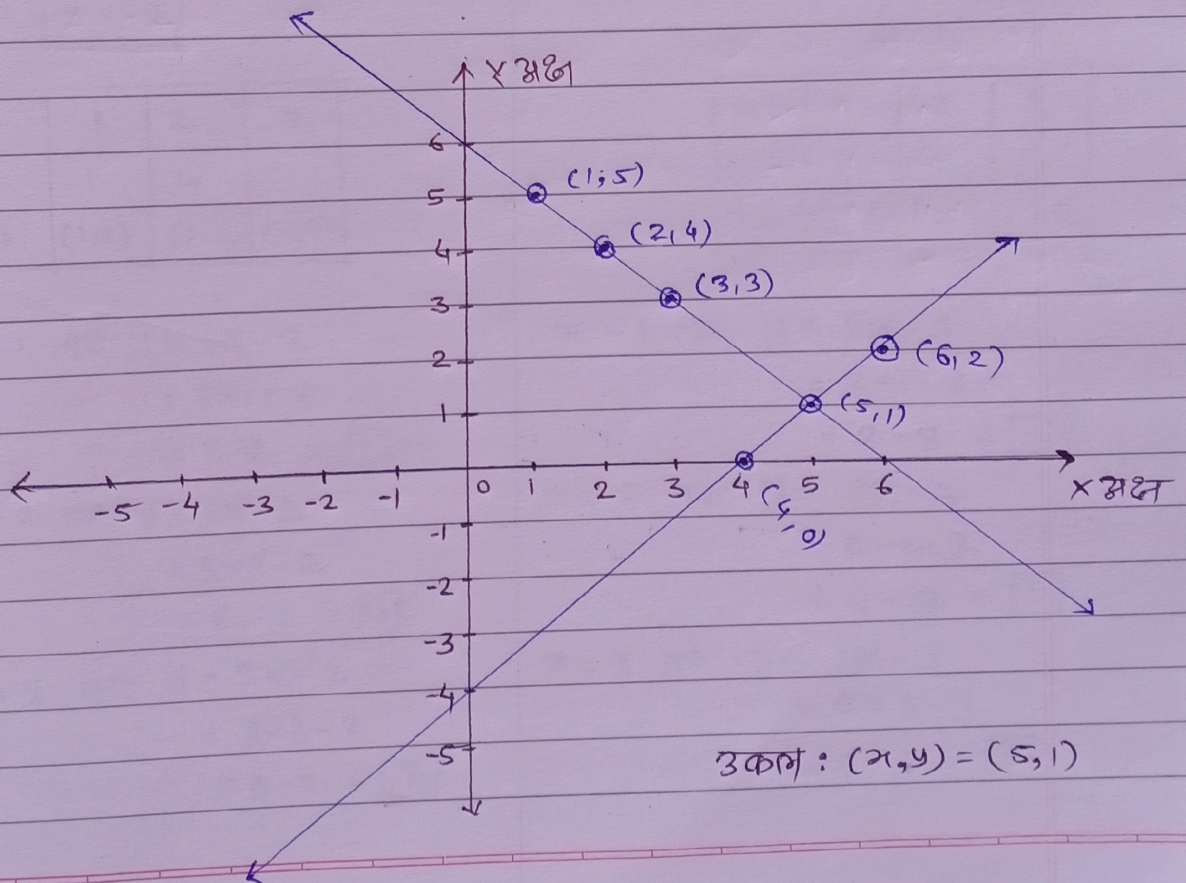 Y अक्ष
6
(1,5)
5
(2,4)
4
(3,3)
3
2
(6,2)
1
(5,1)
-5 -4 -3 -2 -1 0 1 2 3 4 5 6
X अक्ष
(4,0)
-1
-2
-3
-4
-5
उकल : (x,y) = (5,1)